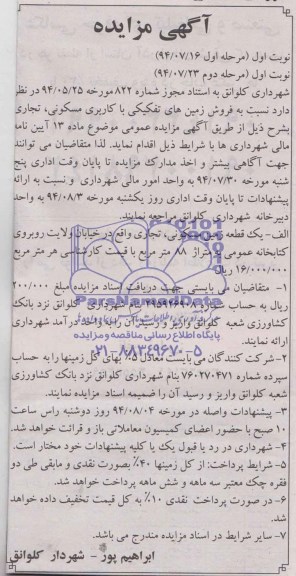 آگهی مزایده
نوبت اول (مرحله اول ۹۴/۰۷/۱۶)
نوبت اول (مرحله دوم ۹۴/۰۷/۲۳)
شهرداری کلوانق به استناد مجوز شماره ۸۲۲ مورخه ۹۴/۰۵/۲۵ در نظر
دارد نسبت به فروش زمین های تفکیکی با کاربری مسکونی، تجاری
بشرح ذیل از طریق آگهی مزایده عمومی موضوع ماده ۱۳ آیین نامه
مالی شهرداری ها با شرایط ذیل اقدام نماید. لذا متقاضیان می توانند
جهت آگاهی بیشتر و اخذ مدارک مزایده تا پایان وقت اداری پنج
شنبه مورخه ۹۴/۰۷/۳۰ به واحد امور مالی شهرداری و نسبت به ارائه
پیشنهادات تا پایان وقت اداری روز یکشنبه مورخه ۹۴/۰۸/۳ به واحد
دبیرخانه شهرداری کلوانق مراجعه نمایند.
الف- یک قطعه زمین مسکونی، تجاری واقع در خیابان ولایت روبروی
کتابخانه عمومی به متراژ ۸۸ متر مربع با قیمت کارشناسی هر متر مربع
۱۶/۰۰۰/۰۰۰ ریال
۱- متقاضیان می بایستی جهت دریافت اسناد مزایده مبلغ ۲۰۰/۰۰۰
ریال به حساب بنام شهرداری کلوانق نزد بانک
کشاورزی شعبه کلوانق واریز و رسید آن را به واحد درآمد شهرداری
ارائه نمایند.
۲- شرکت کنندگان می بایست معادل ۵٪ بهای کل زمینها را به حساب
سپرده شماره ۷۶۰۲۷۰۴۷۱ بنام شهرداری کلوانق نزد بانک کشاورزی
شعبه کلوانق واریز و رسید آن را ضمیمه اسناد مزایده نمایند.
۳- پیشنهادات واصله در مورخه ۹۴/۰۸/۰۴ روز دوشنبه راس ساعت
۱۰ صبح با حضور اعضای کمیسیون معاملاتی باز و قرائت خواهد شد.
۴- شهرداری در رد یا قبول یک یا کلیه پیشنهادات خود مختار است.
۵- شرایط پرداخت: از کل زمینها ۴۰٪ بصورت نقدی و مابقی طی دو
فقره چک معتبر سه ماهه و شش ماهه پرداخت خواهد شد.
۶- در صورت پرداخت نقدی ۱۰٪ به کل قیمت تخفیف داده خواهد
شد.
۷- سایر شرایط در اسناد مزایده مندرج می باشد.
ابراهیم پور - شهردار کلوانق
ParsNamadData
پایگاه اطلاع رسانی مناقصه و مزایده
۰۲۱-۸۸۳۴۹۶۷۰-۵